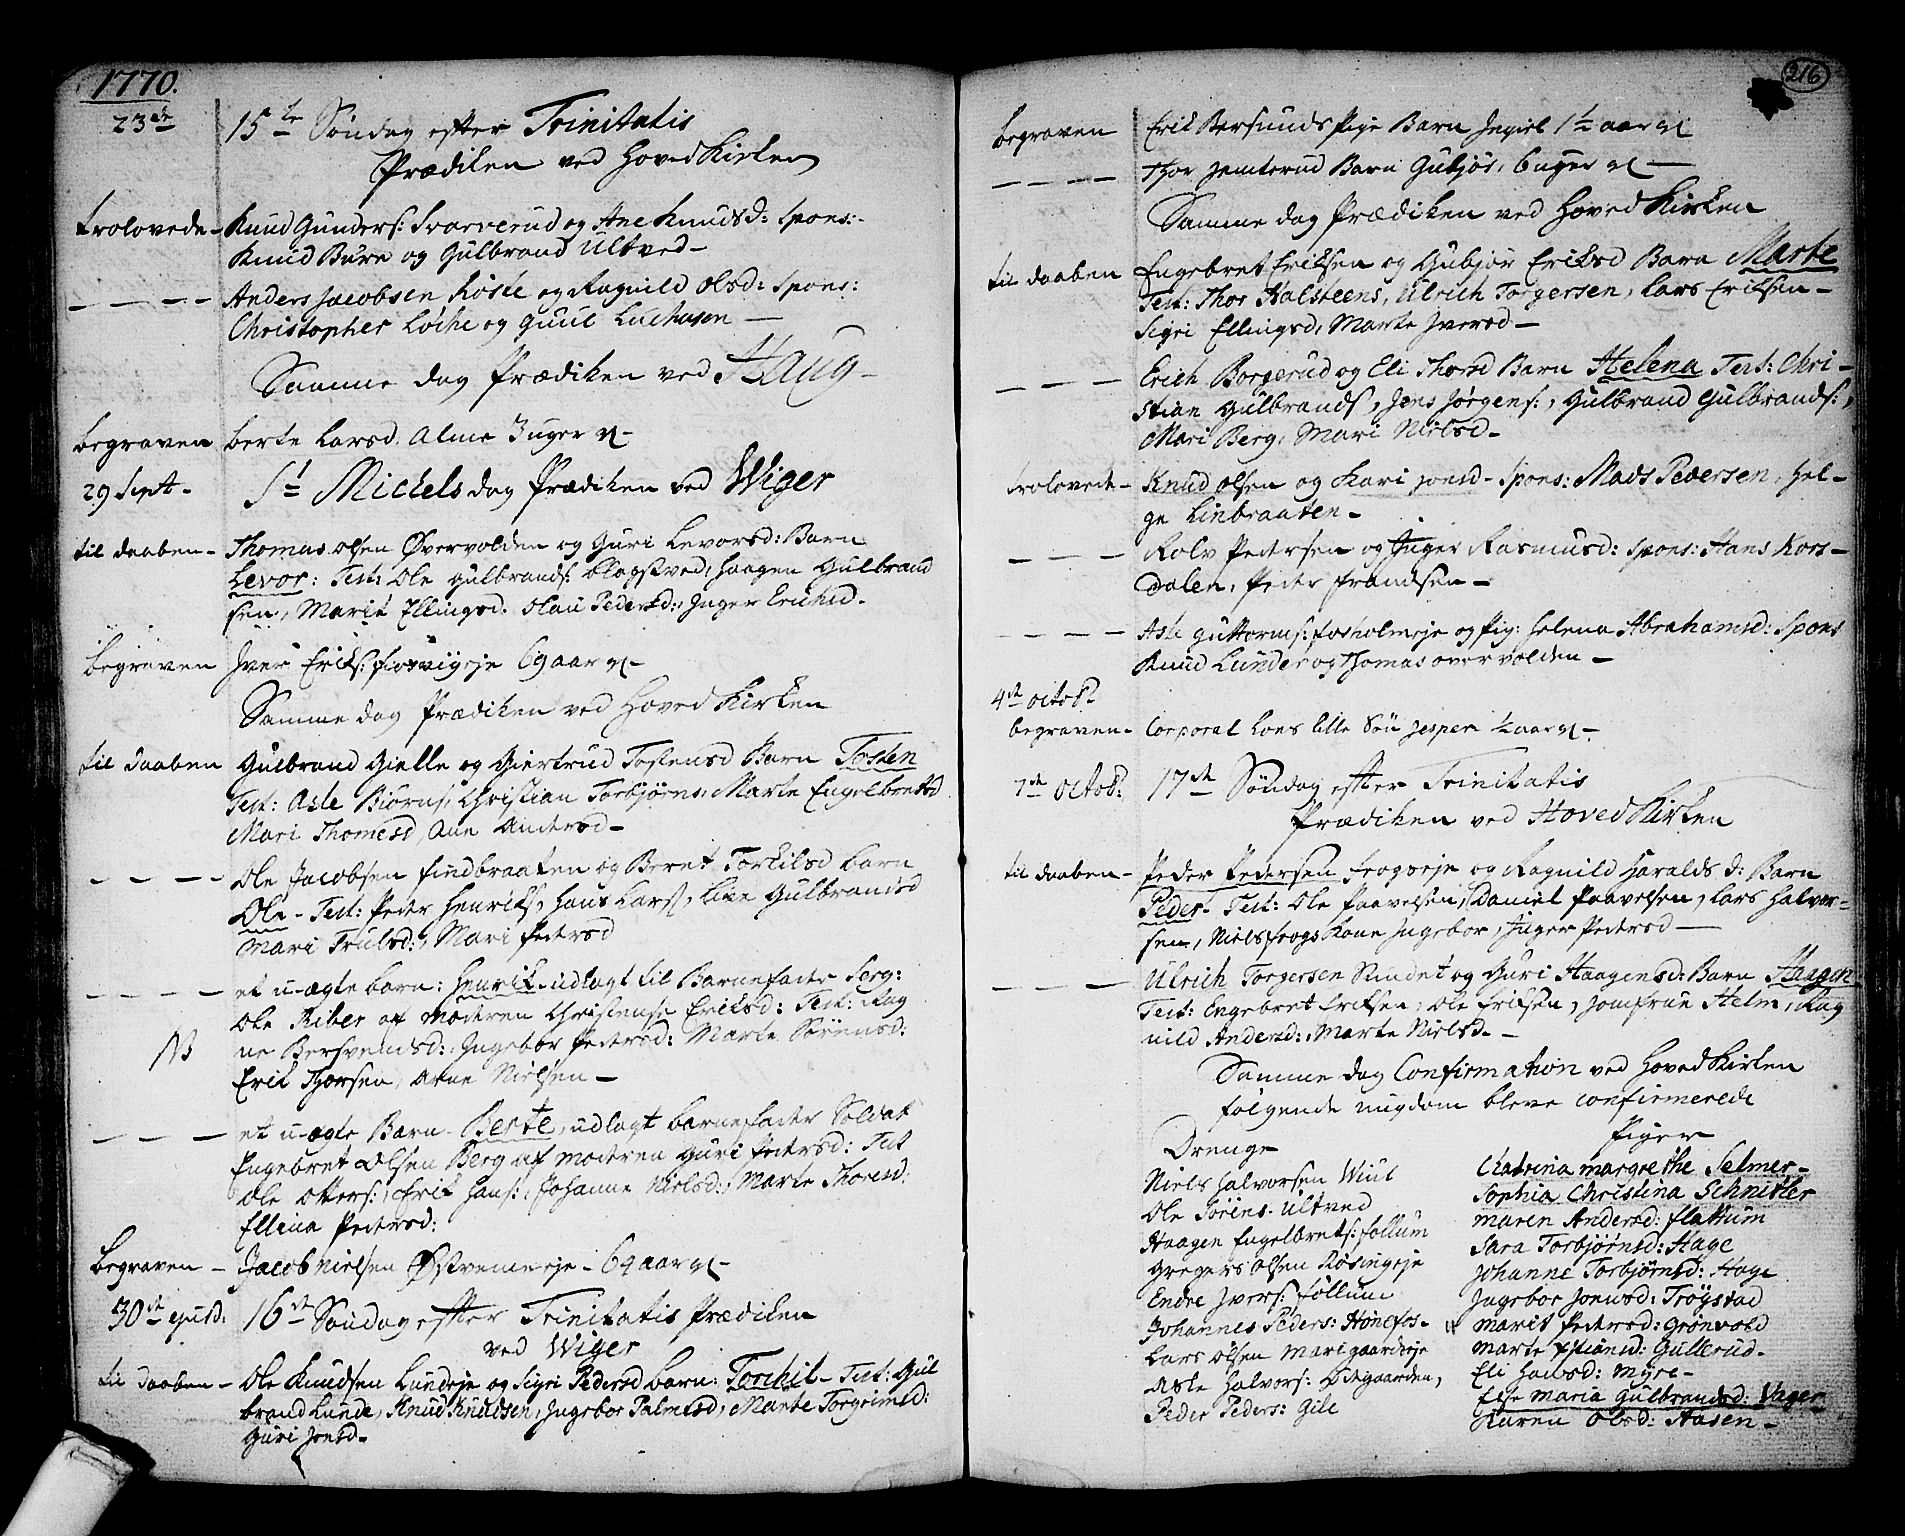 1770.
23de
15de Søndag efter Trinitatis
Prædiken ved Hoved Kirken
trolovede - Knud Gunders: Svarverud og Ane Knudsd: Spons:
Knud Bure og Gulbrand Ultved -
Anders Jacobsen Røste og Ragnild Olsd: Spons:
Christopher Løche og Guul
Samme dag Prædiken ved Haug -
begraven berte Larsd. Alme 3 uger gl -
29 Sept. St Michels dag Prædiken ved Wiger
til daaben - Thomas Olsen Øvervolden og Guri Levorsd: Barn
Levor: Test: Ole Gulbrands: Klogstved, Haagen Gulbrand
sen, Marit Ellingsd. Olau Pedersd:, Inger Erichsd.
begraven Iver Eriks: 69 aar gl -
Samme dag Prædiken ved Hoved Kirken
til daaben Gulbrand Gielle og Giertrud Tostensd Barn Tosten
Test: Asle Biørns, Christian Torbjørns, Marte Engelbretsd
Mari Thomesd, Ane Andersd -
Ole Jacobsen Findbraaten og Beret Torkilsd barn
Ole - Test: Peder Henriks, Hans Lars, Live Gulbrandsd
Mari Trulsd:, Mari Pedersd
et u-ægte barn: Henrik udlagt til Barnefader Serg:
Ole Riber af Moderen Christense Eriksd: Test: Rag
NB
ne Bersvendsd:, Ingebor Pedersd: Marte Sørensd:
Erik Thorsen, Arne Nielsen -
et u-ægte Barn - Berte, udlagt barnefader Soldat
Engebret Olsen Berg af moderen Guri Pedersd: Test
Ole Otters:, Erik Hans:, Johanne Nielsd:, Marte Thoresd:
Ellena Pedersd:
begraven - Jacob Nielsen - 69 aar gl -
30de ejusd: 16de Søndag efter Trinitatis Prædiken
ved Wiger
til daaben - Ole Knudsen Lundeje og Sigri Pedersd barn: Torchil - Test: Gul
brand Lunde, Knud Knudsen, Ingebor Palmesd, Marte Torgrimsd:
Guri Jonsd -
216
begraven Erik Bersunds Pige Barn Ingiel 1½ aar gl
Thor Jemterud Barn Gubjør, 6 uger gl -
Samme dag Prædiken ved Hoved Kirken
til daaben Engebret Eriksen og Gubjør Eriksd Barn Marte
Test: Thor Halsteens, Ulrich Torgersen, Lars Eriksen -
Sigri Ellingsd, Marte Iversd -
Erich Borgerud og Eli Thorsd Barn Helena Test: Chri -
stian Gulbrands, Jens Jørgens:, Gulbrand Gulbrands:,
Mari Berg, Mari Nielsd -
trolovede - Knud Olsen og Kari Jonsd - Spons: Mads Pedersen, Hel -
ge Linbraaten -
Rolv Pedersen og Inger Rasmusd: Spons: Hans Kors -
dalen, Peder Frandsen -
Asle Guttorms: Fosholmeje og Pig: Helena Abrahamsd: Spons
Knud Lunder og Thomas Overvolden -
4de octob:
begraven - Corporal Loes lille Søn Jesper ½ aar gl -
7de octob: 17de Søndag efter Trinitatis
Prædiken ved Hoved Kirken
til daaben - Peder Pedersen Frogseje og Ragnild Haralds d: Barn
Peder - Test: Ole Paavelsen, Daniel Paavelsen, Lars Halvor -
sen, Niels Frogs Kone Ingebor, Inger Pedersd -
Ulrich Torgersen og Guri Haagensd: Barn Haagen
Test: Engebret Eriksen, Ole Eriksen, Jomfrue Helm, Rag
nild Andersd:, Marte Nielsd -
Samme dag Confirmation ved Hoved Kirken
følgende ungdom bleve confirmerede
Drenge
Niels Halvorsen Wiul
Ole Sørens. Ultved
Haagen Engelbrets: Follum
Gregers Olsen Røsingeje
Endre Ivers: Follum
Johannes Peders: Hønefos -
Lars Olsen Marigaardeje
Asle Halvors: Odegaarden,
Peder Peders: Gile
Piger
Chatrina margrethe Selmer -
Sophia Christina Schnitler
Maren Andersd: Flattum
Sara Torbjørnsd: Hage
Johanne Torbjørnsd: Hage
Ingebor Jonsd: Trøgstad
Marit Pedersd: Grønvold
Marte Gullerud -
Eli Hansd: Myre -
Else Maria Gulbrandsd: Vager
Karen Olsd: Aasen -